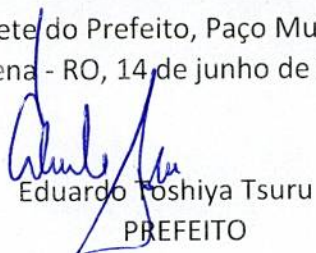 ete do Prefeito, Paço Mu
ena - RO, 14 de junho de
Eduardo Toshiya Tsuru
PREFEITO